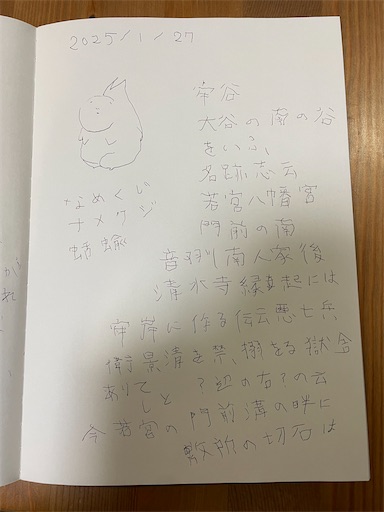 2025/1/27
なめくじ
ナメクジ
蛞蝓
牢谷
大谷の南の谷
をいふ、
名跡志云
若宮八幡宮
門前の南
音羽川南人家後
清水寺縁起には
牢岸に作る伝云悪七兵
衛景清を禁獄舎
ありて ?辺の右?の云
しと
今若宮の門前溝の畔に
敷所の切石は
がれ